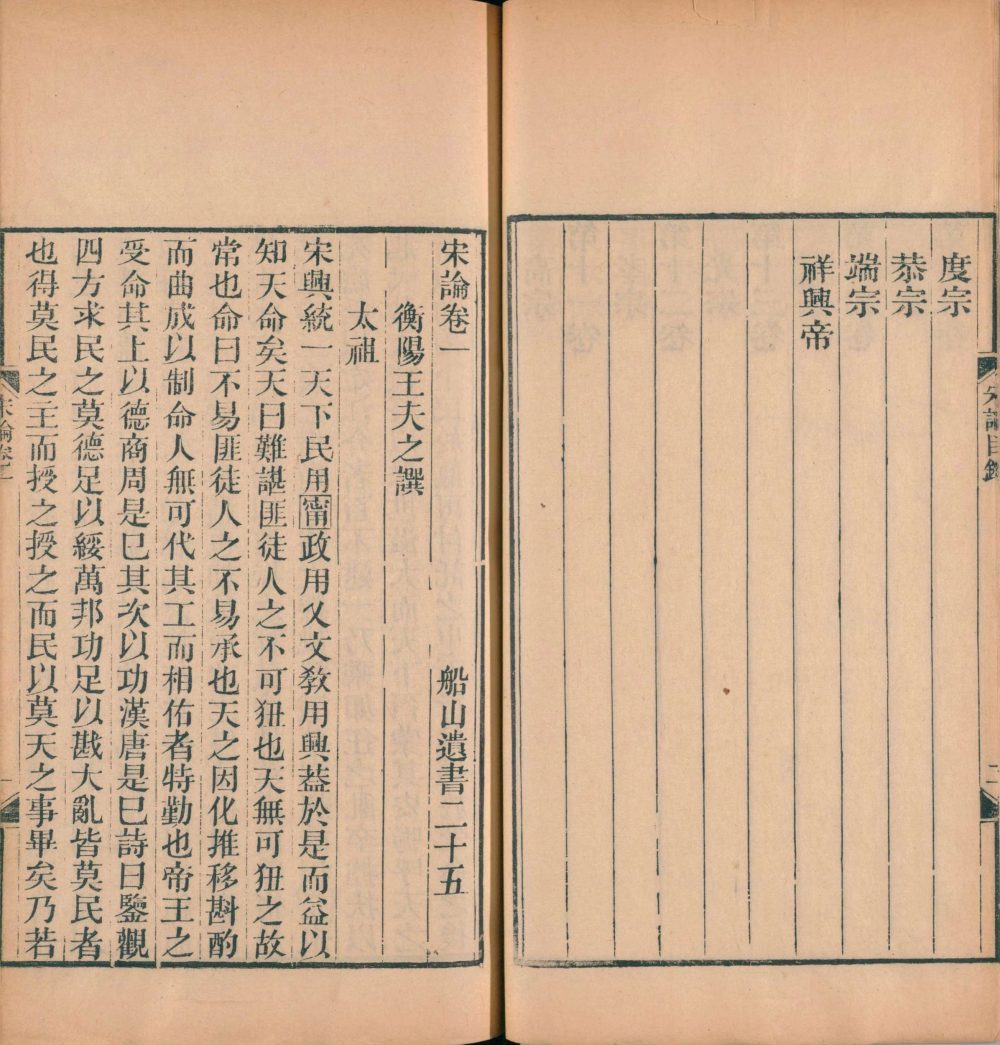 度宗
恭宗
端宗
祥興帝
宋論目錄
二
宋論卷一
船山遺書二十五
衡陽王夫之譔
太祖
宋興統一天下民用甯政用乂文敎用興葢於是而益以
知天命矣天曰難諶匪徒人之不可狃也天無可狃之故
常也命曰不易匪徒人之不易承也天之因化推移斟酌
而曲成以制命人無可代其工而相佑者特勤也帝王之
受命其上以德商周是巳其次以功漢唐是巳詩曰鑒觀
四方求民之莫德足以綏萬邦功足以戡大亂皆莫民者
也得莫民之主而授之授之而民以莫天之事畢矣乃若
宋論卷一
一